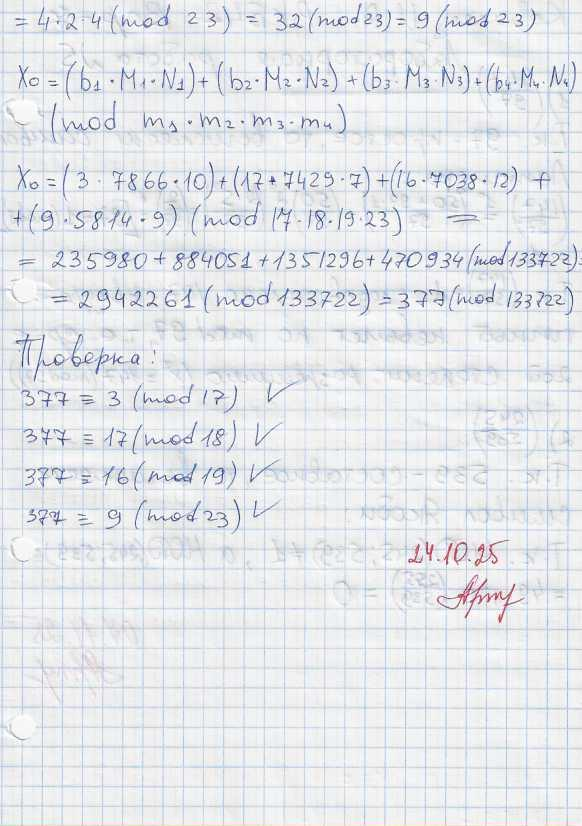 = 4·2·4 (mod 23) = 32 (mod 23) = 9 (mod 23)
X₀ = (b₁·M₁·N₁) + (b₂·M₂·N₂) + (b₃·M₃·N₃) + (b₄·M₄·N₄)
(mod m₁·m₂·m₃·m₄)
X₀ = (3·7866·10) + (17·7429·7) + (16·7038·12) +
+ (9·5814·9) (mod 17·18·19·23) =
= 235980 + 884051 + 1351296 + 470934 (mod 133722) =
= 2942261 (mod 133722) = 377 (mod 133722)
Проверка:
377 ≡ 3 (mod 17) ✓
377 ≡ 17 (mod 18) ✓
377 ≡ 16 (mod 19) ✓
377 ≡ 9 (mod 23) ✓
24.10.25